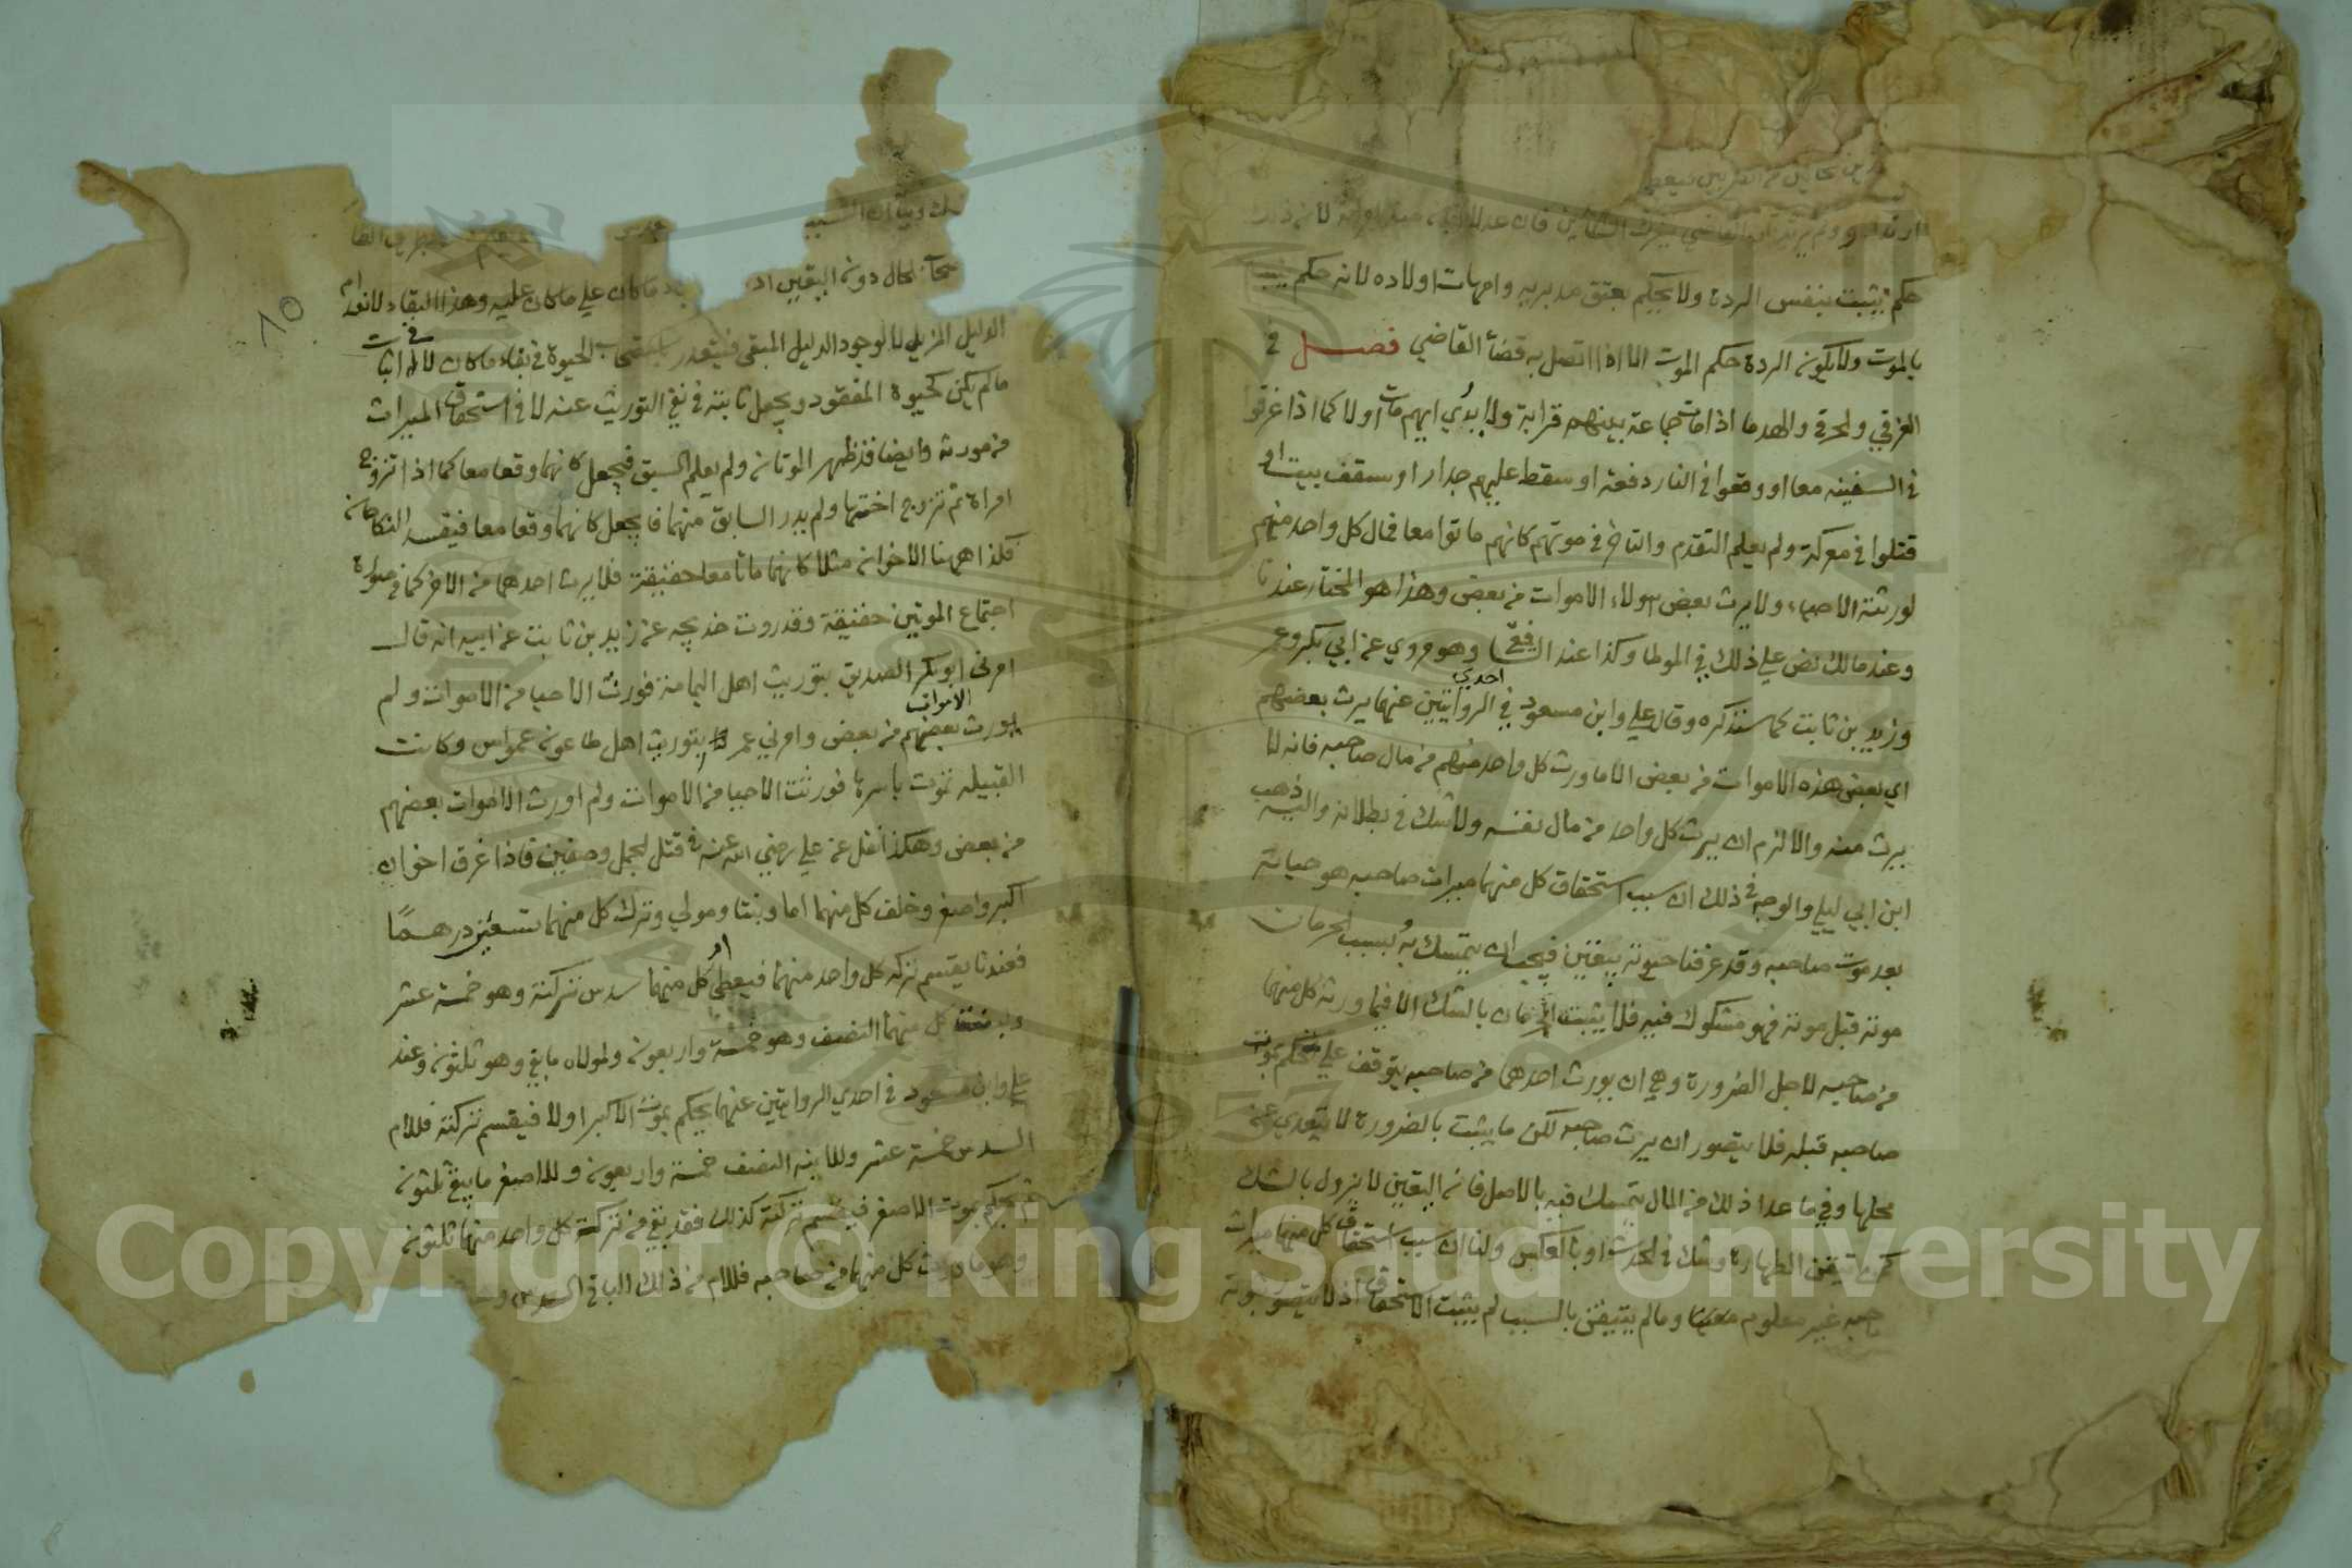 حكم يثبت بنفس الردة ولا يحكم بعتق مدبريه وامهات اولاده لانه حكم
بالموت ولا يكون الردة حكم الموت الا اذا اتصل به قضأ القاضي فصل في
الغرقي والحرقي والهدما اذا مات جماعة بينهم قرابة ولا يدري ايهم مات اولا كما اذا غرقوا
في السفينه معا او وقعوا في النار دفعة او سقط عليهم جدار او سقف بيت او
قتلوا في معركة ولم يعلم التقدم والتاخر في موتهم كانهم ماتوا معا فمال كل واحد منهم
لورثته الاحياء ولا يرث بعض هولاء الاموات من بعض وهذا هو المختار عندنا
وعند مالك نص علي ذلك في الموطا وكذا عند الشافعي وهو مروي عن ابي بكر وعمر
وزيد بن ثابت كما سنذكره وقال علي وابن مسعود في احدي الروايتين عنهما يرث بعضهم
اي بعض هذه الاموات من بعض الا ما ورث كل واحد منهم من مال صاحبه فانه لا
يرث منه والا لزم ان يرث كل واحد من مال نفسه ولا شك في بطلانه واليه ذهب
ابن ابي ليلي والوجه في ذلك ان سبب استحقاق كل منهما ميراث صاحبه هو حياته
بعد موت صاحبه وقد عرفنا حيوته بيقين فيجب ان يتمسك به وسبب الحرمان
موته قبل موته فهو مشكوك فيه فلا يثبت الحرمان بالشك الا فيما ورثه كل منهما
من صاحبه لاجل الضرورة وهي ان يورث احدهما من صاحبه يتوقف علي الحكم بموت
صاحبه قبله فلا يتصور ان يرث صاحبه لكن ما يثبت بالضرورة لا يتعدي عن
محلها وفي ما عدا ذلك من المال يتمسك فيه بالاصل فان اليقين لا يزول بالشك
كمن تيقن الطهارة وشك في الحدث او بالعكس ولنا ان سبب استحقاق كل منهما ميراث
صاحبه غير معلوم وما لم يتيقن بالسبب لم يثبت الاستحقاق اذ لا يتصور ثبوته
الدليل المزيل لا لوجود الدليل المبقي فيتعدر الحيوة في بقاء ما كان لا في اثبات
مالم يكن كحيوة المفقود ويجعل ثابتة في نفي التوريث عنه لا في استحقاق الميراث
من مورثه وايضا قد ظهر الموتان ولم يعلم السبق فيجعل كانهما وقعا معا كما اذا تزوج
امراة ثم تزوج اختها ولم يدر السابق منهما فيجعل كانهما وقعا معا فيفسد النكاحان
فكذا ههنا الاخوان مثلا كانهما ماتا معا حقيقة فلا يرث احدهما من الاخر كما في صورة
اجتماع الموتين حقيقة وقد روت خديجه عن زيد بن ثابت عن ابيه انه قال
امرني ابو بكر الصديق بتوريث اهل اليمامة فورثت الاحيا من الاموات ولم
اورث الاموات بعضهم من بعض وامرني عمر بتوريث اهل طاعون عمواس وكانت
القبيلة تموت باسرها فورثت الاحيا من الاموات ولم اورث الاموات بعضهم
من بعض وهكذا نقل عن علي رضي الله عنه في قتل الجمل وصفين فاذا غرق اخوان
اكبر واصغر وخلف كل منهما اما وبنتا ومولي وترك كل منهما تسعين درهما
فعندنا يقسم تركه كل واحد منهما فيعطي ام كل منهما سدس تركته وهو خمسة عشر
وبنت كل منهما النصف وهو خمسة واربعون ولمولاه ما بقي وهو ثلثون وعند
علي وابن مسعود في احدي الروايتين عنهما يحكم بموت الاكبر اولا فيقسم تركته فللام
السدس خمسة عشر وللابنه النصف خمسة واربعون وللاصغر ما بقي ثلثون
ثم يحكم بموت الاصغر فيقسم تركته كذلك فقد بقي من تركة كل واحد منهما ثلثون
وهو ما ورث كل منهما من صاحبه فللام من ذلك الباقي السدس
Copyright © King Saud University